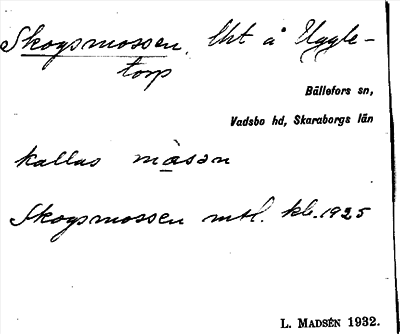 Skogsmossen, lht å Uggle-
torp
Bällefors sn,
Vadsbo hd, Skaraborgs län
kallas måsən
Skogsmossen mtl. kb. 1925
L. MADSÉN 1932.